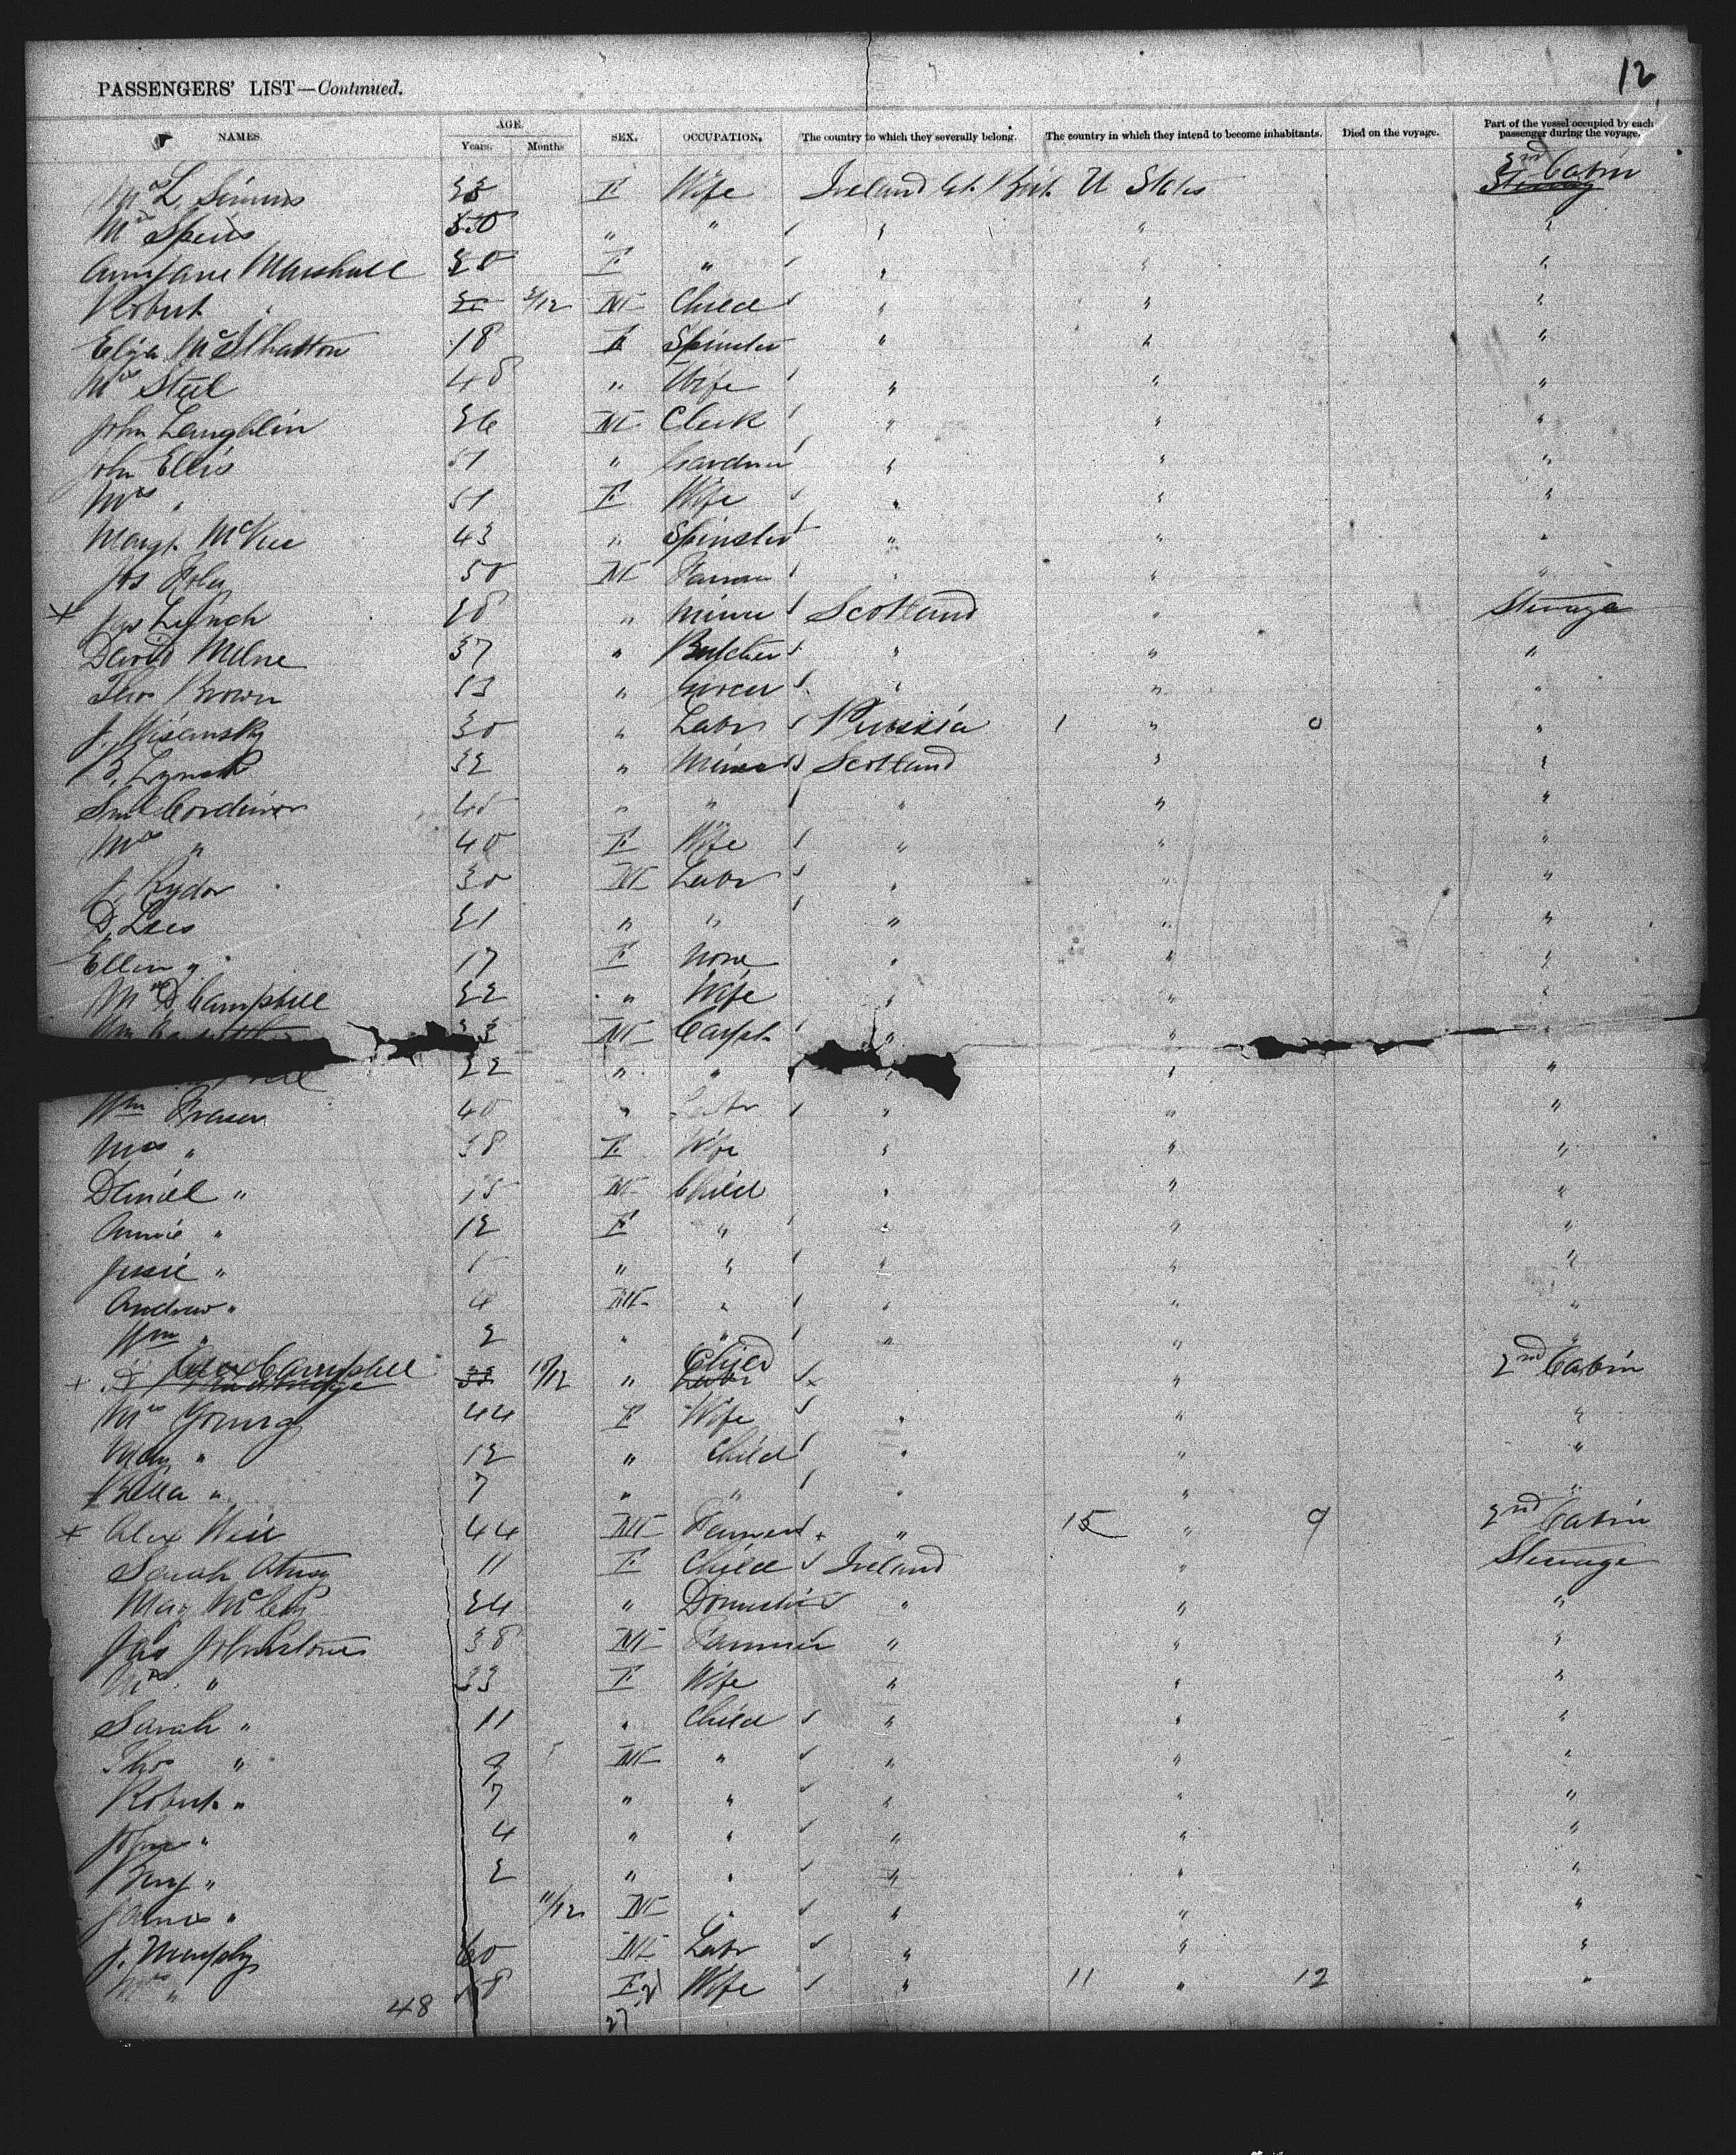 12
PASSENGERS' LIST—Continued.
NAMES. AGE. Years. Months SEX. OCCUPATION. The country to which they severally belong. The country in which they intend to become inhabitants. Died on the voyage. Part of the vessel occupied by each passenger during the voyage.
Mrs L. Simms F Wife Ireland Gt. Brit. U States 2nd Cabin
Mrs Speirs " " " " "
Annjane Marshall 20 F " " " "
Robert " M Child " " "
Eliza McIlhatton 18 F Spinster " " "
Mrs Steel 48 " Wife " " "
John Laughlin 26 M Clerk " " "
John Ellis 51 " Gardner " " "
Mrs " 51 F Wife " " "
Margt. McKee 43 " Spinster " " "
Jos 50 M Farmer " " "
Lynch 28 " Miner Scotland " Steerage
David Milne 37 " Butcher " " "
Thos Brown 13 " Grocer " " "
J. 30 " Labr Russia 1 " 0 "
Lynch 32 " Miner Scotland " "
Saml Cordiner 45 " " " " "
Mrs " 40 F Wife " " "
J. Rydor 30 M Labr " " "
D. Lees 21 " " " " "
Ellen " 17 F None " " "
Mrs D. Campbell 22 " Wife " " "
Wm M Carpt. " " "
22 " " " " "
Wm Fraser 40 " Labr " " "
Mrs " 38 F Wife " " "
Daniel " 15 M Child " " "
Annie " 12 F " " " "
Jessie " " " " " "
Andrew " 4 M " " " "
Wm " 2 " " " " "
Alex Campbell 10/12 " Child " 2nd Cabin
Mrs Young 44 F Wife " " "
Mary " 12 " Child " " "
Bella " 7 " " " " "
Alex Weir 44 M Farmer " 15 " 9 2nd Cabin
Sarah 11 F Child Ireland " Steerage
Mary 24 " Domestic " " "
Jas Johnstone 38 M Farmer " " "
Mrs " 33 F Wife " " "
Sarah " 11 " Child " " "
Thos " 9 M " " " "
Robert " 7 " " " " "
John " 4 " " " " "
Benj " 2 " " " " "
James " 11/12 M " " " "
J. Murphy 60 M Labr " " "
Mrs " 58 F Wife " 11 " 12 "
48 21
27